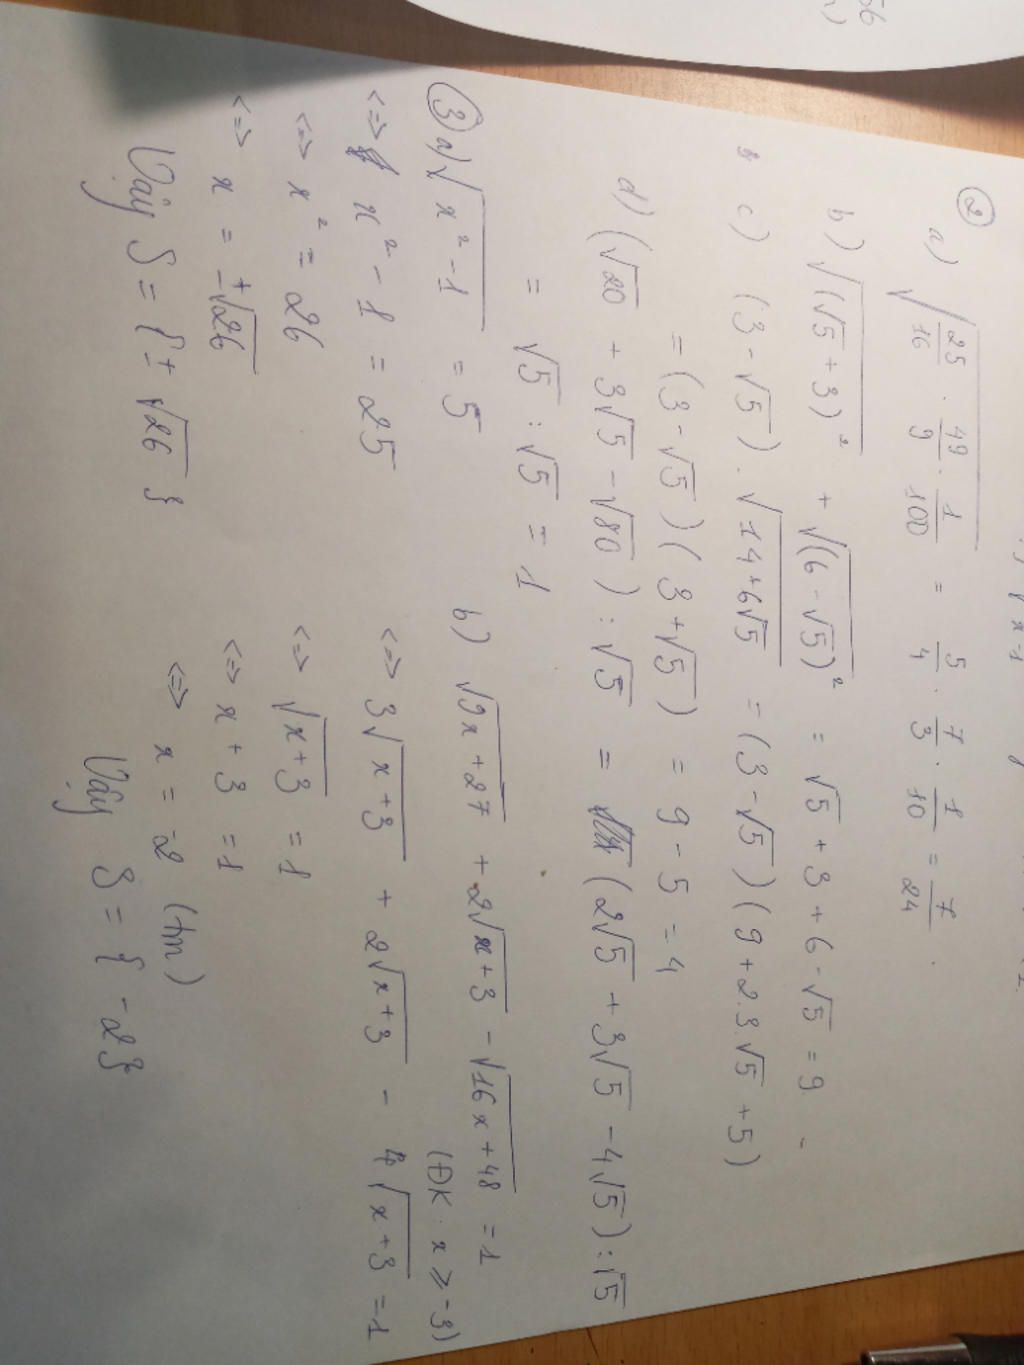 56
②
a) √(25/16 · 49/9 · 1/100) = 5/4 · 7/3 · 1/10 = 7/24 .
b) √(√5 + 3)² + √(6 - √5)² = √5 + 3 + 6 - √5 = 9
c) (3 - √5) . √(14 + 6√5) = (3 - √5) (9 + 2.3.√5 + 5)
= (3 - √5) (3 + √5) = 9 - 5 = 4
d) (√20 + 3√5 - √80) : √5 = (2√5 + 3√5 - 4√5) : √5
= √5 : √5 = 1
③ a) √(x² - 1) = 5
<=> x² - 1 = 25
<=> x² = 26
<=> x = ±√26
Vậy S = {± √26}
b) √(9x + 27) + 2√(x + 3) - √(16x + 48) = 1
(ĐK : x ⩾ -3)
<=> 3√(x + 3) + 2√(x + 3) - 4√(x + 3) = 1
<=> √(x + 3) = 1
<=> x + 3 = 1
<=> x = -2 (tm)
Vậy S = { -2}